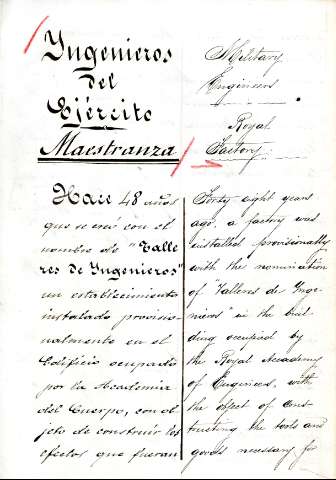 Ingenieros
del
Ejército
Maestranza
Hace 48 años
que se creó con el
nombre de "Talle
res de Ingenieros"
un establecimiento
instalado provisio-
nalmente en el
Edificio ocupado
por la Academia
del Cuerpo, con ob
jeto de construir los
efectos que fueran
Military
Engineers
Royal
Factory.
Forty eight years
ago, a factory was
installed provisionally
with the nomination
of Talleres de Inge-
nieros" in the buil
ding occupied by
the Royal Academy
of Engineers, with
the object of Cons-
tructing the tools and
goods necessary for